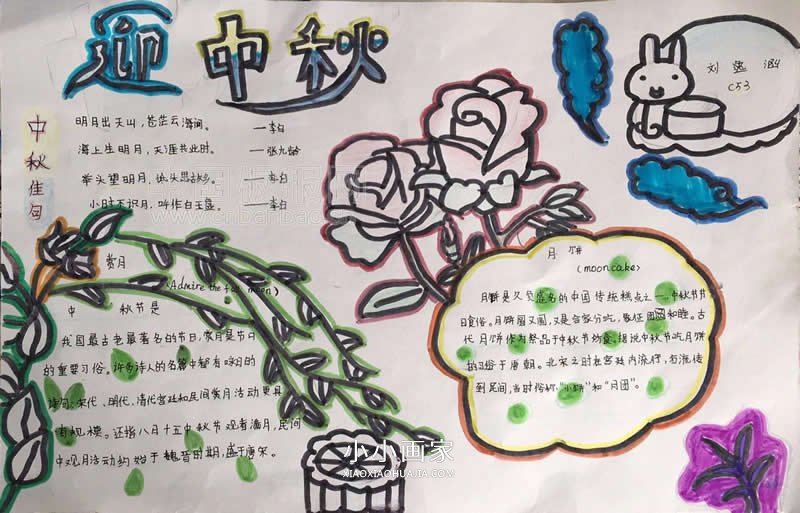 迎中秋
中秋佳句
明月出天山，苍茫云海间。 ——李白
海上生明月，天涯共此时。 ——张九龄
举头望明月，低头思故乡。 ——李白
小时不识月，呼作白玉盘。 ——李白
刘
C53
赏月
(Admire the full moon)
中 秋节是
我国最古老最著名的节日，赏月是节日
的重要习俗。许多诗人的名篇中都有咏月的
诗句，宋代、明代、清代宫廷和民间赏月活动更具
有规模。还指八月十五中秋节观看满月，民间
中观月活动约始于魏晋时期，盛于唐宋。
月饼
(mooncake)
月饼是久负盛名的中国传统糕点之一，中秋节节
日食俗。月饼圆又圆，又是合家分吃，象征团圆和睦。古
代月饼作为祭品于中秋节所食。据说中秋节吃月饼
的习俗于唐朝。北宋之时在宫廷内流行，后流传
到民间，当时俗称"小饼"和"月团"。
小小画家
XIAOXIAOHUAJIA.COM